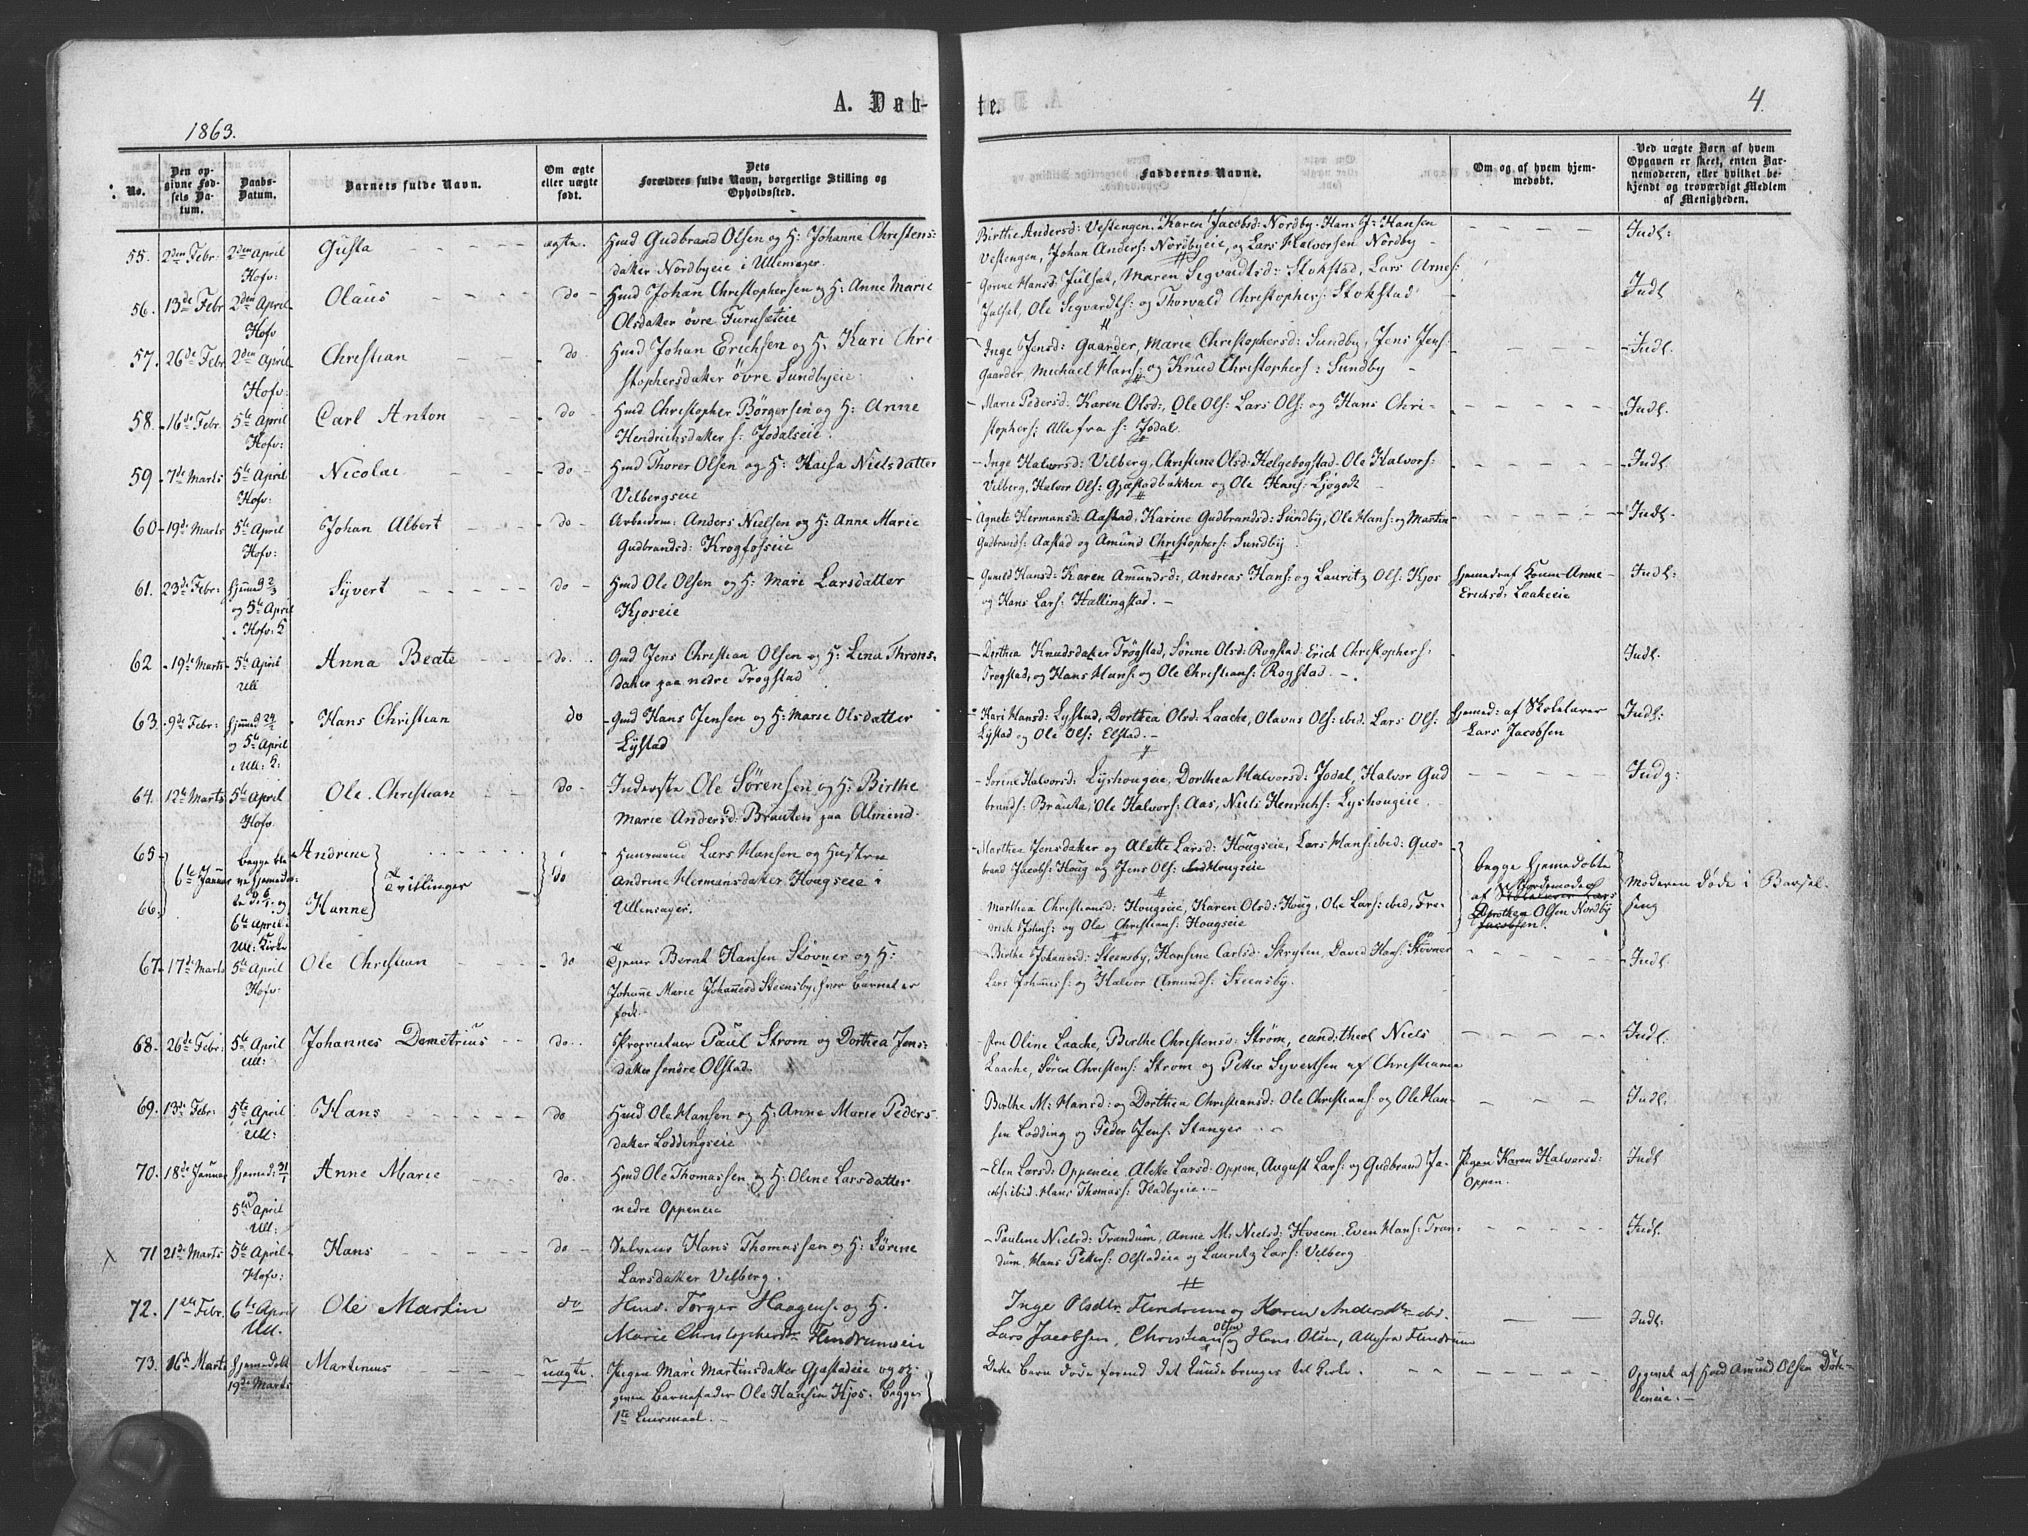 A. Døb-
te.
4.
1863.
No.
Den op-
givne Fød-
sels Da-
tum.
Daabs-
Datum.
Barnets fulde Navn.
Om ægte
eller uægte
født.
Dets
Forældres fulde Navn, borgerlige Stilling og
Opholdssted.
Faddernes Navne.
Om og af hvem hjem-
medøbt.
Ved uægte Børn af hvem
Opgaven er skeet, enten Bar-
nemoderen, eller hvilket be-
kjendt og troværdigt Medlem
af Menigheden.
55. 2den Febr: 2den April Gusta ægte. Hmd Gudbrand Olsen og H: Johanne Christens:
Hofv: datter Nordbyeie i Ullensager.
Birthe Andersd: Vestengen. Karen Jacobsd: Nordby. Hans J: Hansen
Vestengen, Johan Anders: Nordbyeie, og Lars Halvorsen Nordby
Indl:
56. 13de Febr 2den April Olaus do Hmd Johan Christophersen og H: Anne Marie
Hofv Olsdatter øvre Furusæteie
Gonne Hansd Julset, Maren Segvardtsd: Stokstad, Lars Arnes:
Julset, Ole Segvardts: og Thorvald Christophers: Stokstad
Indl
57. 26de Febr 2den April Christian do. Hmd Johan Erichsen og H: Kari Chri
Hofv: stophersdatter øvre Sundbyeie
Inge Jensd: Gaarder, Marie Christophersd: Sundby, Jens Jens:
Gaarder Michael Hans: og Knud Christophers: Sundby
Indl.
58. 16de Febr. 5te April Carl Anton do Hmd Christopher Børgersen og H: Anne
Hofv: Hendrichsdatter s: Jodalseie.
Marie Pedersd: Karen Olsd:, Ole Ols: Lars Ols: og Hans Chri-
stophers: Alle fra s: Jodal.
Indl.
59 7de Marts 5te April Nicolai do Hmd Thorer Olsen og H: Kaisa Nielsdatter
Hofv: Vilbergseie
Inge Halvorsd: Vilberg, Christine Olsd: Helgebogstad. Ole Halvors:
Vilberg, Halvor Ols: Gjæstadbakken og Ole Hans: Ljøgodt
Indl.
60 19de Marts 5te April Johan Albert do Arbeidsm: Anders Nielsen og H: Anne Marie
Hofv: Gudbrandsd: Krogfosseie
Agnete Hermansd: Aastad, Karine Gudbrandsd: Sundby, Ole Hans: og Martin
Gudbrands: Aastad og Amund Christophers: Sundby
Indl.
61. 23de Febr: hjemmed 2/3 Syvert do Hmd Ole Olsen og H: Mari Larsdatter
og 5te April Kjoseie
i Hofv: K
Gunild Hansd: Karen Amundsd:, Andreas Hans: og Lauritz Ols: Kjos
og Hans Lars: Hallingstad.
hjemed: af Konen Anne
Erichsd: Laakeeie
Indl.
62 19de Marts 5te April Anna Beate do. Gmd Jens Christian Olsen og H: Lina Throns-
Ull datter paa nedre Trøgstad
Dorthea Knudsdatter Trøgstad, Sørine Olsd: Rogstad. Erich Christophers:
Trøgstad, og Hans Hans: og Ole Christians: Rogstad.
Indl.
63. 9de Febr: Hans Christian do Gmd Hans Jensen og H: Marie Olsdatter
og 5te April Lystad
i Ull: K:
Kari Hansd: Lystad, Dorthea Olsd: Laache, Olavus Ols: ibid. Lars Ols:
Lystad og Ole Ols: Elstad.
hjemed: af Skolelærer
Lars Jacobsen
Indl:
64. 12te Marts 5te April Ole Christian do Inderste Ole Sørensen og H: Birthe
Hofv. Marie Andersd: Brauten paa Almind.
Sorine Halvorsd: Lyshougeie, Dorthea Halvorsd: Jodal, Halvor Gud
brands: Brauta, Ole Halvors: Aas, Niels Henrichs: Lyshougeie
65 Andrine
6te Januar Begge ble
ve hjemedøb
te og
6te April
Ull: Kirke
Tvillinger
do
Huusmand Lars Hansen og Hustru
Andrine Hermansdatter Hougseie i
Ullensager.
66. Hanne
Marthea Jensdatter og Alette Larsd: Hougseie, Lars Hans: ibid: Gud-
brand Jacobs: Houg og Jens Ols: Hougseie
Marthea Christiansd: Hougseie, Karen Olsd: Houg, Ole Lars: ibid, Fre-
drick Johns: og Ole Christians: Hougseie
begge hjemedøbte
af Jordemoder
Dorothea Olsen Nordby
Moderen døde i Barsel-
seng
67 17de Marts 5te April Ole Christian do Tjener Bernt Hansen Støvner og H:
Hofv. Johanne Marie Johannesd Steensby, hvor Barnet er
født.
Birthe Johannesd: Steensby, Hansine Carlsd: Skryten, David Hans: Støvner
Lars Johannes: og Halvor Amunds: Steensby.
Indl.
68. 26de Febr: 5te April Johannes Demetrius do. Proprietær Paul Strøm og Dorthea Jens-
Ull: datter søndre Olstad.
Oline Laache, Birthe Christensd: Strøm, cand: theol Niels
Laache, Søren Christens: Strøm og Petter Syvertsen af Christiania
Indl.
69. 13de Febr: 5te April Hans do Hmd Ole Hansen og H: Anne Marie Peders
Ull: datter Loddingseie
Birthe M: Hansd: og Dorthea Christiansd: Ole Christians: og Ole Han-
sen Lodding og Peder Jens: Stanger
Indl:
70. 18de Januar hjemed: 31/1 Anne Marie do. Hmd Ole Thomassen og H: Oline Larsdatter
5te April nedre Oppeneie
Ull:
Elen Larsd: Oppeneie Alette Larsd: Oppen, August Lars: og Gudbrand Ja-
cobs: ibid. Hans Thomass: Fladbyeie.
Pigen Karen Halvorsd:
Oppen.
Indl
x 71 21de Marts 5te April Hans do Selveier Hans Thomassen og H: Sørine
Hofv: Larsdatter Vilberg.
Pauline Nielsd: Trandum, Anne M: Nielsd: Hveem. Even Hans: Tran-
dum. Hans Petters: Olstadeie og Lauritz Lars: Vilberg
Indl.
72. 1ste Febr. 6te April Ole Martin do Hmd. Torger Haagens: og H.
Ull. Marie Christophersdtr Flendrumseie
Inge Olsdtr. Flendrum og Karen Andersdtr ibid.
Lars Jacobsen, Christian Olsen og Hans Olsen, Alle fra Flendrum
Indl.
73. 16de Marts hjemedøbt Martinius uægte. Pigen Mari Martinsdatter Gjæstadeie og op-
19de Marts given Barnefader Ole Hansen Kjos. Begges
1ste Leiermaal.
Dette Barn døde forend det kunde bringes til Kirke.
Opgivet af Hmd Amund Olsen Døh-
leneie.